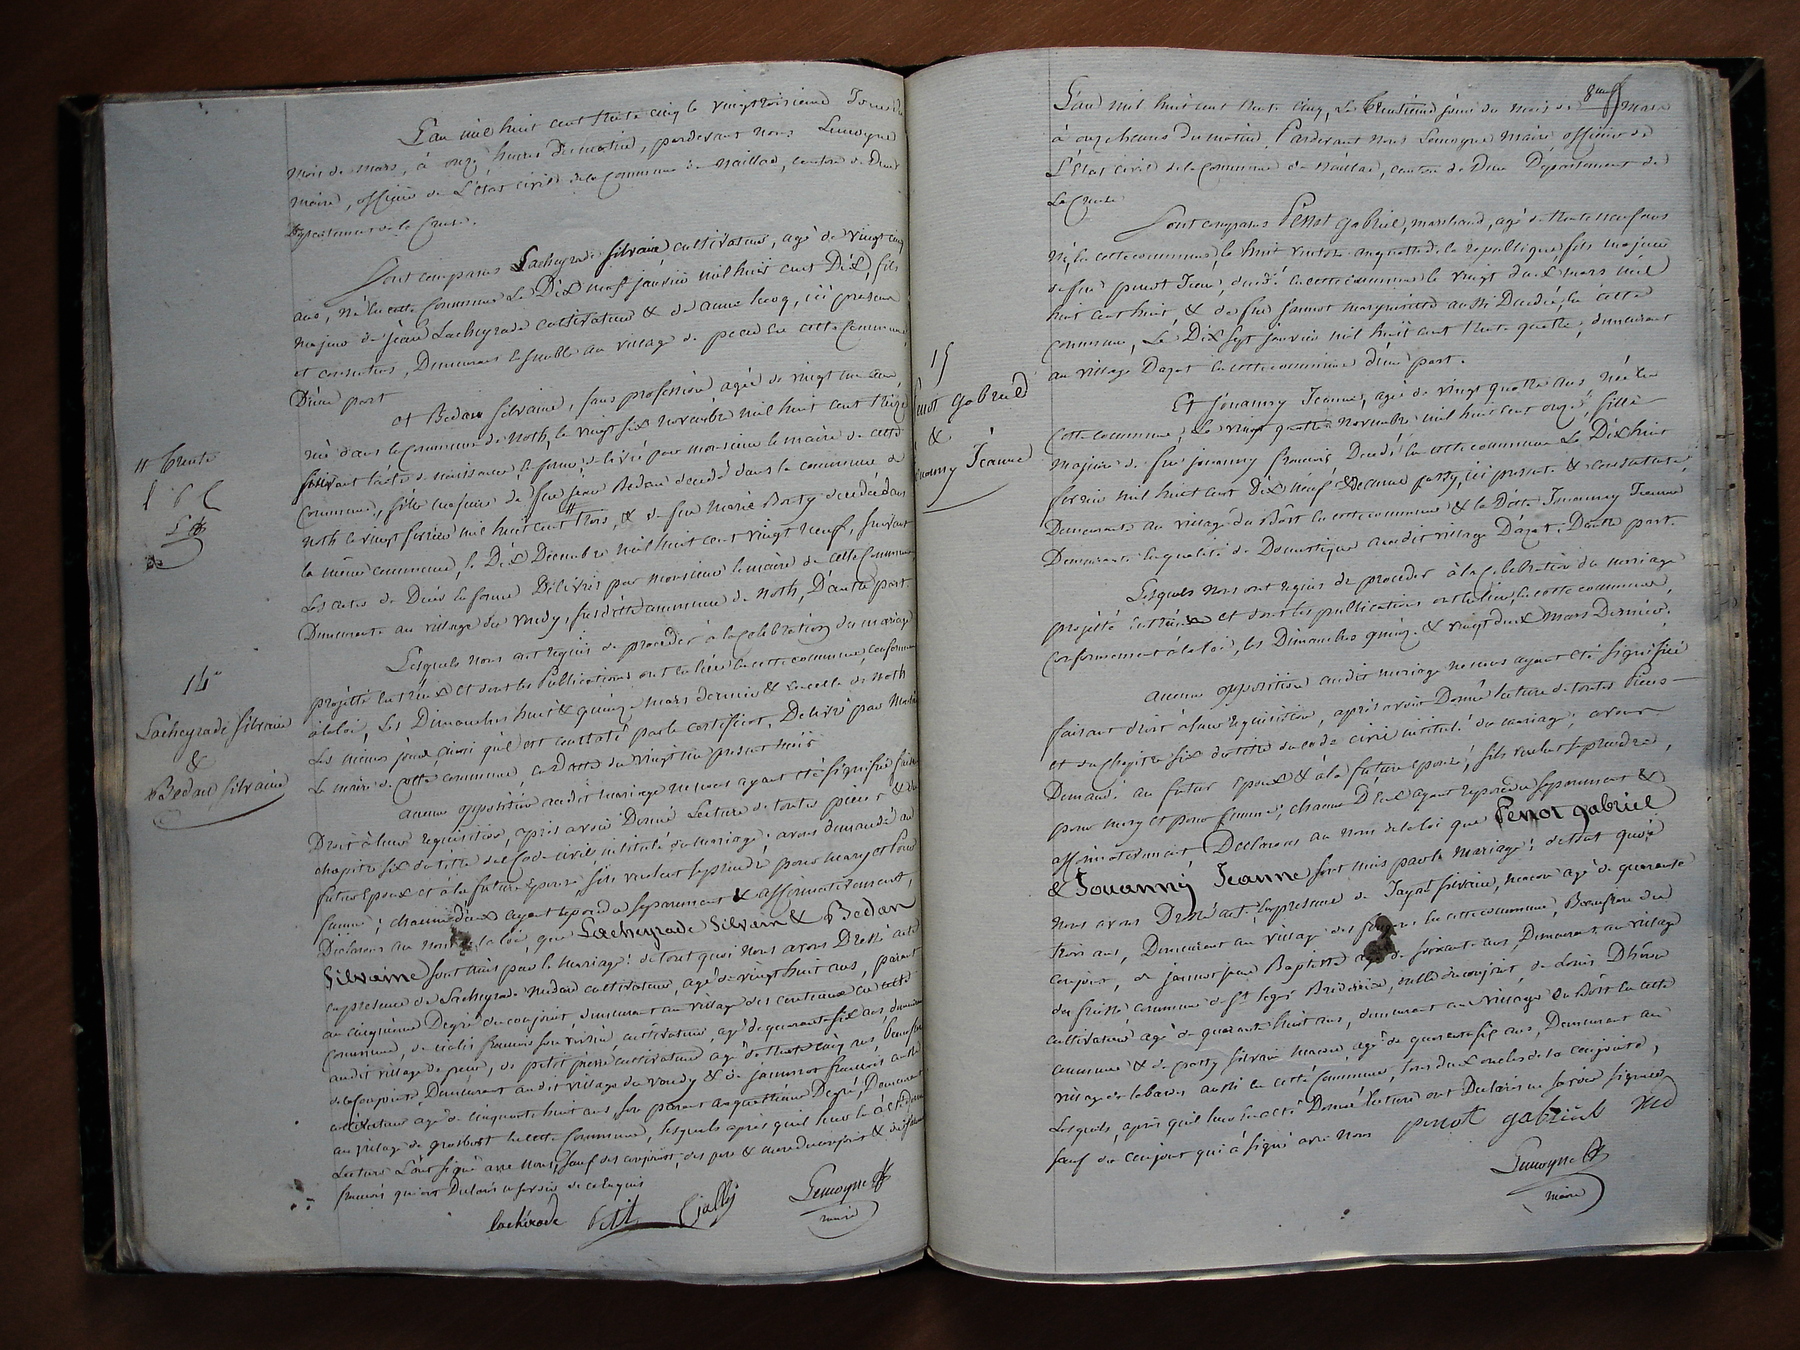 L'an mil huit cent trente cinq le vingt troisieme Jour du
mois de mars, à onze heures du matin, pardevant nous Lemoyne
maire, officier de L'Etat civil de la Commune de Naillat, canton de Dun
Département de la Creuse.
Sont comparus Lacheyrade Silvain cultivateur, agé de vingt cinq
ans, né en cette Commune Le Dix neuf janvier mil huit cent Dix, fils
majeur de jean Lacheyrade cultivateur & de anne lecoq, ici presents
et consentans, Demeurant Ensemble au village de en cette Commune
D'une part
et Bedan Silvaine, sans profession, agée de vingt un ans,
née dans la Commune de Noth, le vingt six novembre mil huit cent treize
suivant l'acte de naissance en forme délivré par monsieur le maire de cette
Commune, fille majeure de feu jean Bedan décédé dans la commune de
noth le vingt fevrier mil huit cent trois, & de feu Marie decedée dans
la même commune, le Dix Decembre mil huit cent vingt neuf, suivant
Les actes de Décès en forme Délivrés par monsieur le maire de cette Commune
Demeurante au village du , susdite commune de noth, D'autre part
Lesquels nous ont requis de procéder à la Célébration du mariage
projetté entre eux et dont les Publications ont eu lieu en cette commune, conformement
à la loi, Les Dimanches huit & quinze mars dernier & en celle de noth
Les mêmes jours, ainsi qu'il est constaté par le certificat, Delivré par Monsieur
Le maire de cette commune, en Datte du vingt un présent mois
aucune opposition audit mariage ne nous ayant été signifiée faisant
Droit à leur requisition, après avoir Donné Lecture de toutes pièces & du
chapitre six du titre du Code civil intitulé du mariage; avons demandé au
futur Epoux et à la future Epouse, s'ils veulent se prendre pour mary et pour
femme; chacun d'eux ayant repondu séparement & affirmativement,
Déclarons au nom de la loi, que Lacheyrade Silvain & Bedan
Silvaine sont unis par le mariage: de tout quoi nous avons Dressé acte
en présence de Lacheyrade médard cultivateur, agé de vingt huit ans, parent
au cinquième Degré du conjoint, demeurant au village des couteaux en cette
Commune, de françois son voisin, cultivateur, agé de quarante six ans demeurant
audit village de , de petit pierre cultivateur agé de trente cinq ans, beaufrère
de la conjointe, Demeurant audit village du & de jannot françois aussi
cultivateur agé de cinquante huit ans son parent au quatrième Degré, Demeurant
au village de grosbost en cette Commune, lesquels après qu'il leur
Lecture L'ont signé avec nous, sauf des conjoints, des père & mère du conjoint &
françois qui ont Déclaré ne savoir de ce Enquis
lachérade petit Cially Lemoyne
maire
# trente
14e
Lacheyrade Silvain
&
Bedan Silvaine
L'an mil huit cent trente cinq, Le trentième jour du mois de mars
à onze heures du matin, Pardevant nous Lemoyne Maire officier de
L'Etat civil de la Commune de Naillat, canton de Dun Département de
La Creuse
Sont comparus Penot Gabriel, marchand, agé de trente neuf ans
né en cette commune, le huit ventose an quatre de la republique, fils majeur
de feu penot Jean, décédé en cette commune le vingt deux mars mil
huit cent huit & de feue jannot marguerite aussi Décédée en cette
commune, Le Dix sept janvier mil huit cent trente quatre, demeurant
au village Dazat en cette commune d'une part.
Et Jouanny Jeanne, agée de vingt quatre ans née en
cette commune, le vingt quatre novembre mil huit cent onze, fille
majeure de feu jouanny françois, Décédé en cette commune Le Dix huit
fevrier mil huit cent Dix neuf & de anne party, ici présente & consentante,
Demeurante au village du Bost en cette commune & la Ditte Jouanny Jeanne
Demeurante en qualité de Domestique audit village Dazat, D'autre part.
Lesquels nous ont requis de proceder à la Celebration du mariage
projetté entre eux et dont les publications ont eu lieu en cette commune,
conformement à la loi, les Dimanches quinze & vingt deux mars Dernier.
aucune opposition audit mariage ne nous ayant été signifiée
faisant droit à leur requisition, après avoir Donné lecture de toutes Pièces
et du Chapitre six du titre du code civil intitulé du mariage; avons
Demandé au futur époux & à la future épouse, s'ils veulent se prendre,
pour mary et pour femme; chacun D'eux ayant repondu séparement &
affirmativement Declarons au nom de la loi que Penot gabriel
& Jouanny Jeanne sont unis par le mariage; de tout quoi
nous avons Dressé acte en présence de Silvain, macon agé de quarante
trois ans, Demeurant au village des en cette commune, Beaufrère du
conjoint, de jannot jean Baptiste agé de soixante ans Demeurant au village
du commune de St , oncle du conjoint, de Louis
cultivateur agé de quarante huit ans, demeurant au village du Bost en cette
commune & de party Silvain macon, agé de quarante six ans, Demeurant au
village de aussi en cette Commune, tous deux oncles de la conjointe,
Lesquels, après qu'il leur en a été Donné lecture ont Declaré ne savoir signer
sauf du conjoint qui à signé avec nous penot gabriel
Lemoyne
maire
15
Penot Gabriel
&
Jouanny Jeanne